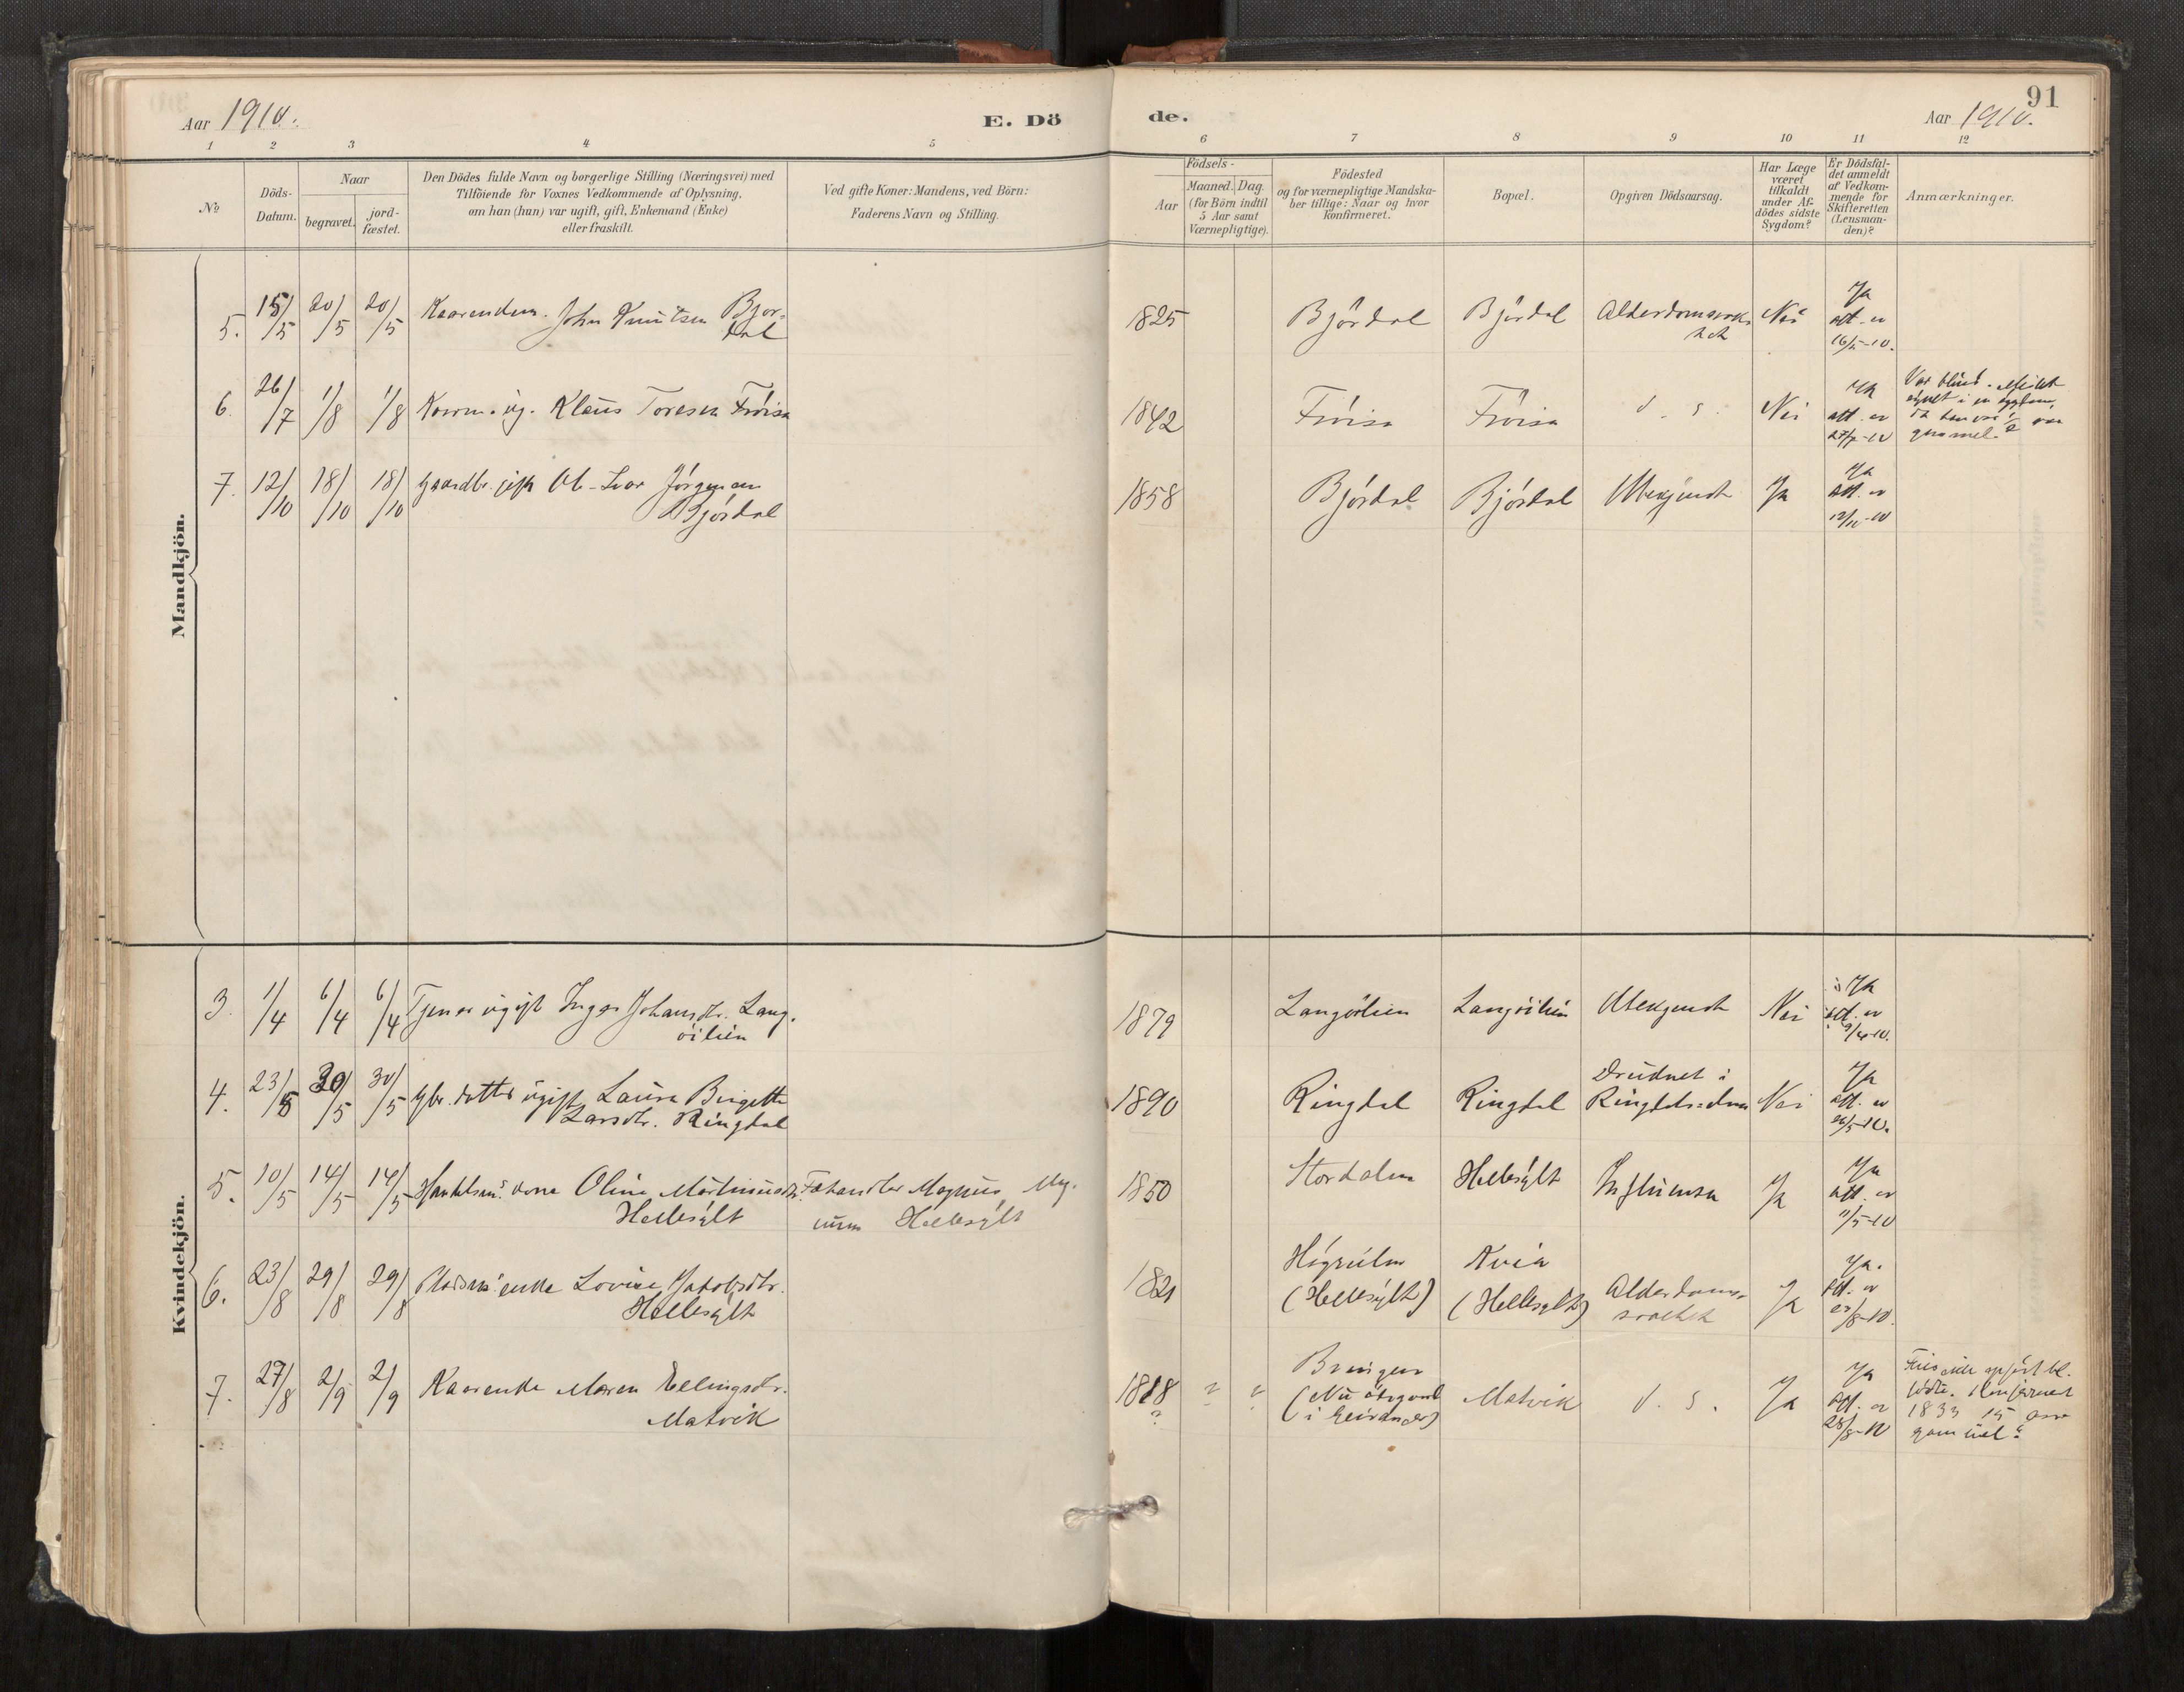 91
Aar 1910.
E. Dö
de.
Aar 1910.
1 2 3 4 5 6 7 8 9 10 11 12
No
Döds-
Datum.
Naar
begravet.
jord-
fæstet.
Den Dödes fulde Navn og borgerlige Stilling (Næringsvei) med
Tilföiende for Voxnes Vedkommende af Oplysning,
om han (hun) var ugift, gift, Enkemand (Enke)
eller fraskilt.
Ved gifte Koner: Mandens, ved Börn:
Faderens Navn og Stilling.
Födsels-
Aar
Maaned. Dag.
(for Börn indtil
5 Aar samt
Værnepligtige).
Födested
og for værnepligtige Mandska-
ber tillige: Naar og hvor
konfirmeret.
Bopæl.
Opgiven Dödsaarsag.
Har Læge
været
tilkaldt
under Af-
dödes sidste
Sygdom?
Er Dödsfal-
det anmeldt
af Vedkom-
mende for
Skifteretten
(Lensman-
den)?
Anmærkninger.
Mandkjön.
5. 15/5 20/5 20/5 Kaarendm. John Knutsen Björ-
dal
1825 Björdal Björdal Alderdomssvæk-
ket
Nei Ja
att. er
16/5-10.
6. 26/7 1/8 1/8 Kaarm. ug. Klaus Toresen Fröisa
1842 Fröisa Fröisa d. s. Nei Ja
att. er
27/7-10
Var blind. Mistet
synet i en sygdom,
da han var 1/2 aar
gammel.
7. 12/10 18/10 18/10 Gaardbr. gift Ole-Ivar Jörgensen
Björdal
1858 Björdal Björdal Ubekjendt Ja Ja
att. er
12/10-10
Kvindekjön.
3. 1/4 6/4 6/4 Tjener ugift Inger Johansdtr. Lang-
öilien
1879 Langöilien Langöilien Ubekjendt Nei Ja
att. er
9/4-10.
4. 23/5 30/5 30/5 Gbr. datter ugift Laura Birgette
Larsdtr. Ringdal
1890 Ringdal Ringdal Druknet i
Ringdalselven
Nei Ja
att. er
26/5-10.
5. 10/5 14/5 14/5 Handelsm. kone Oline Martinusdtr.
Hellesylt
Fehandler Magnus
Hellesylt
1850 Stordalen Hellesylt Influensa Ja Ja
att. er
11/5-10
6. 23/8 29/8 29/8 Pladsm. enke Lovise Jakobsdtr.
Hellesylt
1821
(Hellesylt)
Kvia
(Hellesylt)
Alderdoms-
svækket
Ja Ja.
att. er
23/8-10.
7. 27/8 2/9 2/9 Kaarenke Maren Ellingsdtr.
Matvik
1818
?
? ?
(Nu ödegaard
i Geiranger)
Matvik d. s. Ja Ja
att. er
28/8-10
ikke opfört bl.
födte. Konfirmeret
1833 15 aar
gammel?